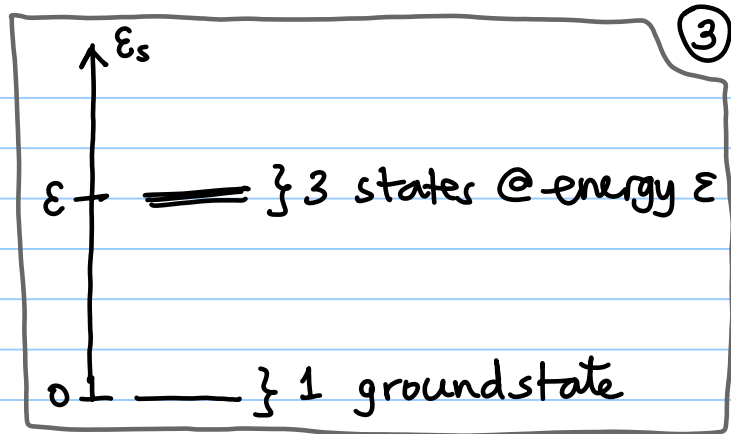 ③
εs
ε } 3 states @ energy ε
0 } 1 ground state